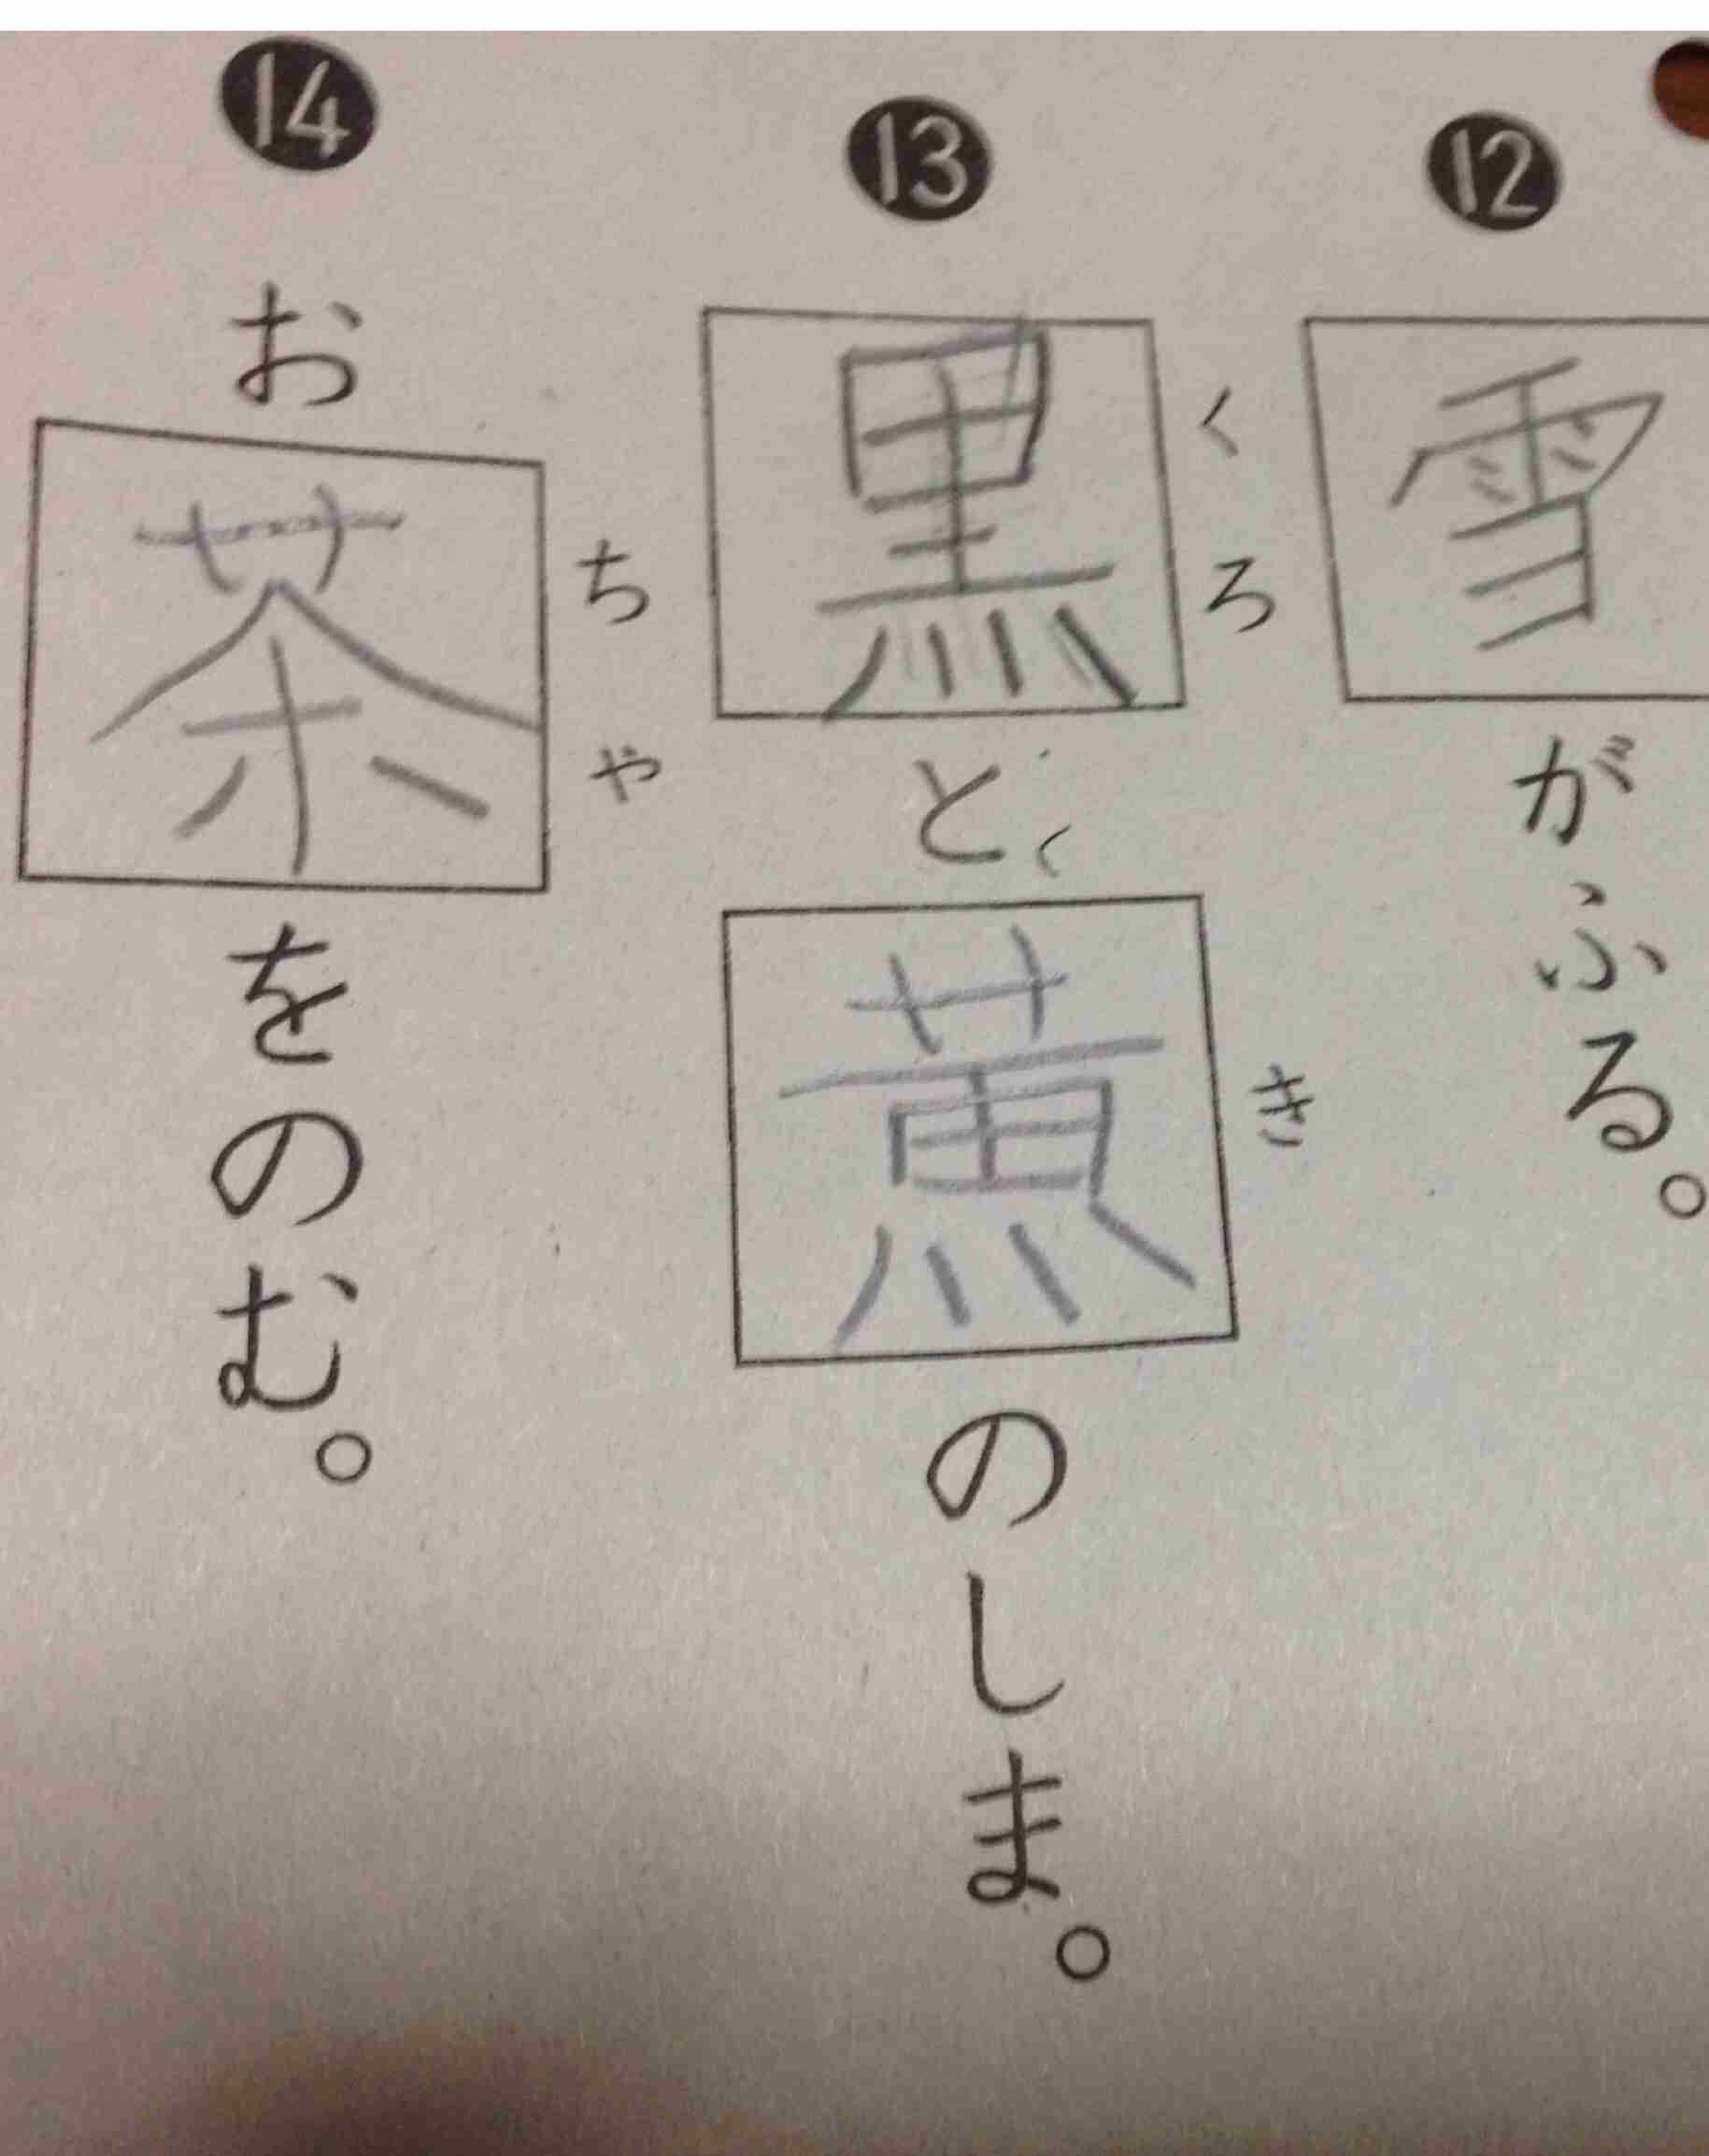 ⓬ 雪がふる。
⓭ 黒と黄のしま。
くろ
き
⓮ お茶をのむ。
ちゃ